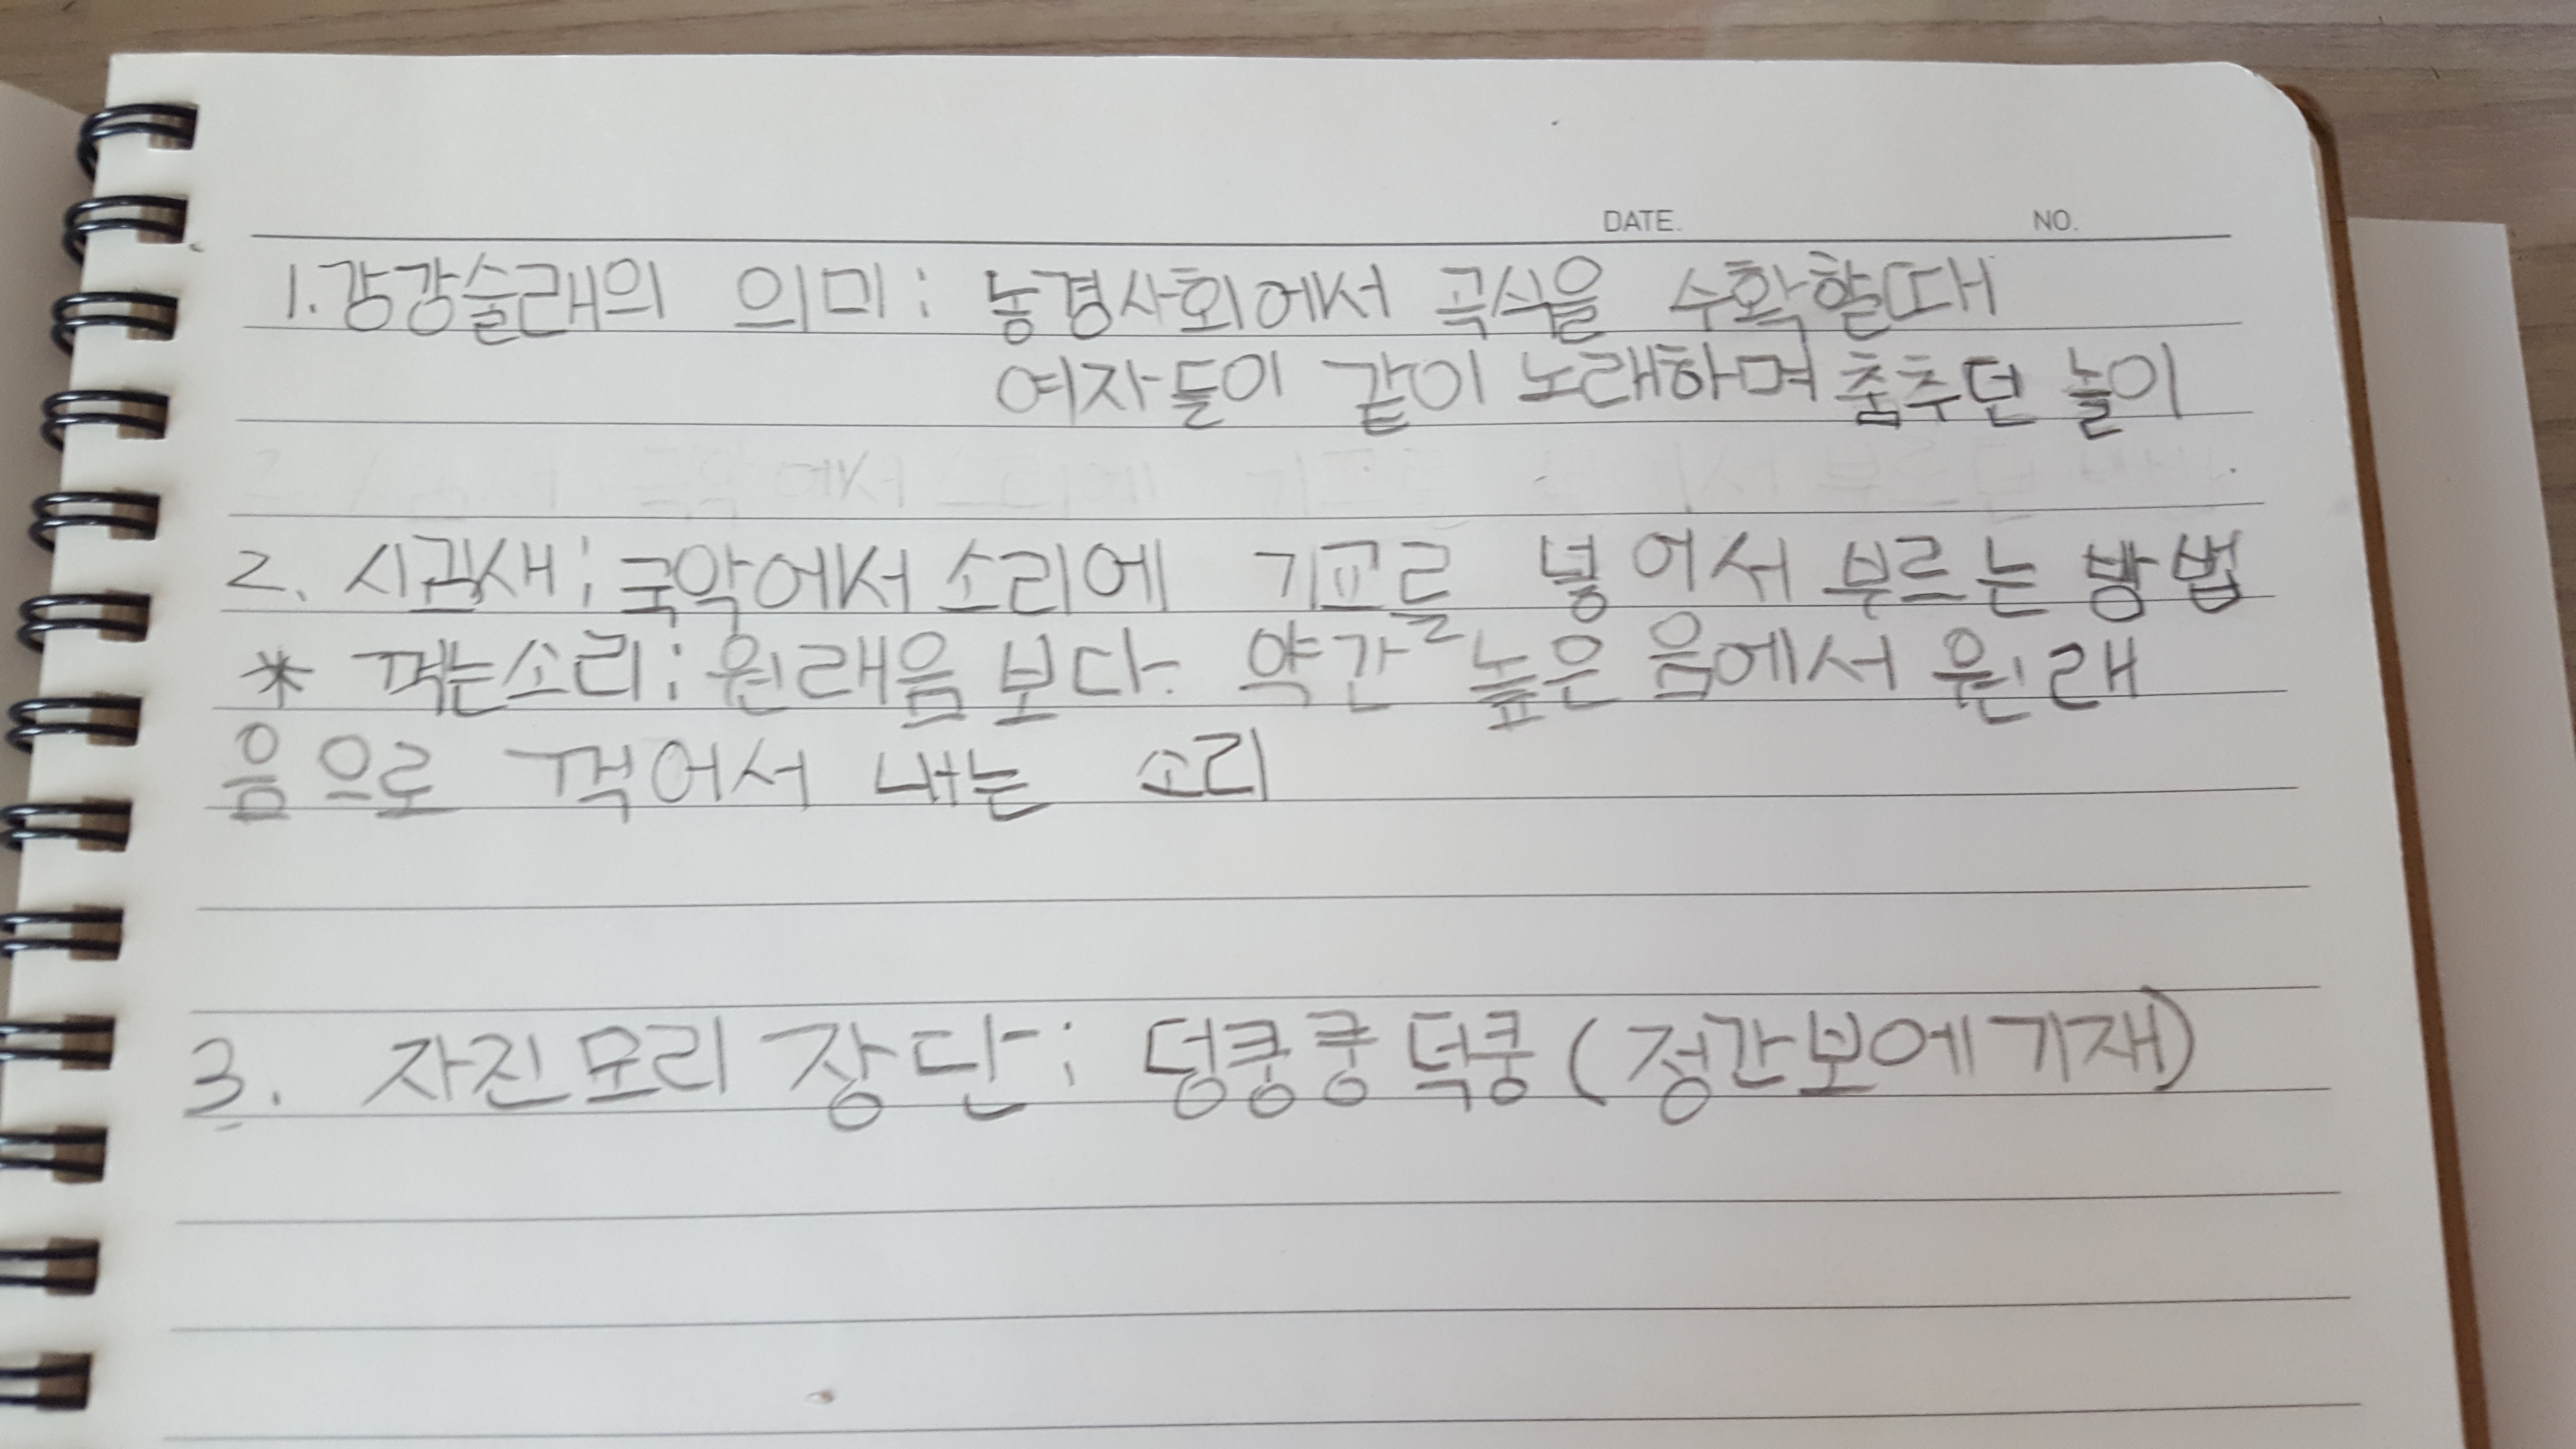 DATE. NO.
1. 강강술래의 의미 : 농경사회에서 곡식을 수확할때
여자들이 같이 노래하며 춤추던 놀이
2. 시김새 : 국악에서 소리에 기교를 넣어서 부르는 방법
* 꺽는소리 : 원래음보다 약간 높은 음에서 원래
음으로 꺽어서 내는 소리
3. 자진모리 장단 : 덩쿵쿵덕쿵 (정간보에 기재)